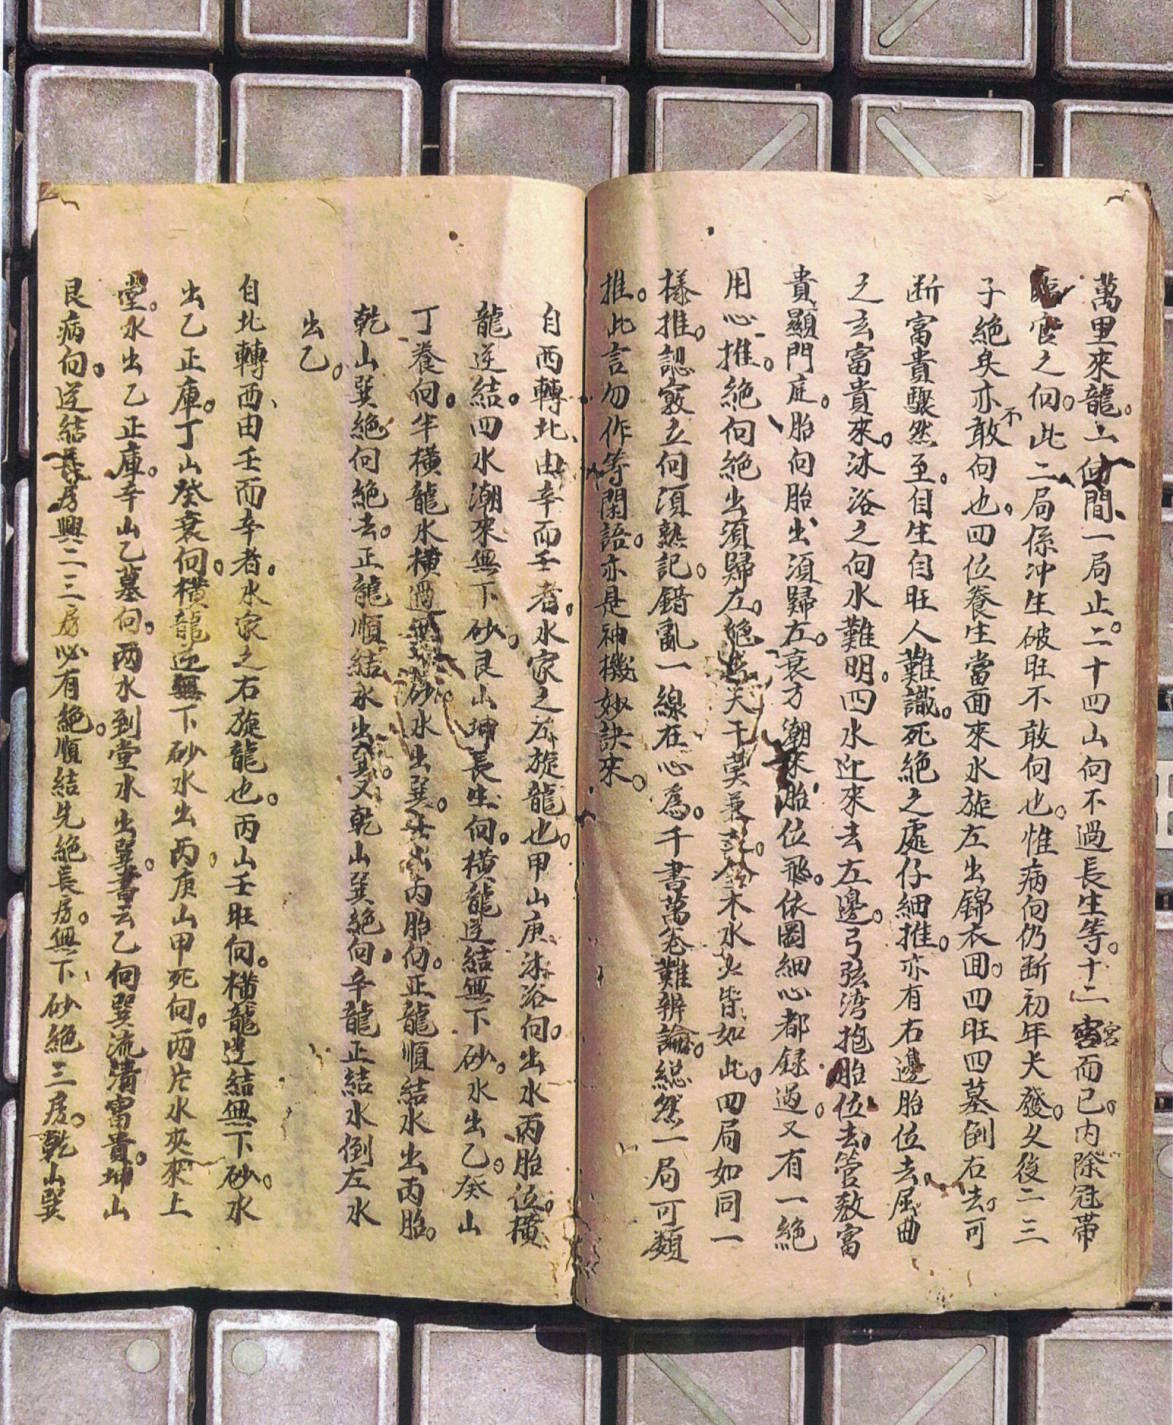 萬里來龍。上向間一局止。二十四山向不過長生等。十二宮而已。内除冠帶
臨官之向。此二局係冲生破旺不敢向也。惟病向仍断初年大發。久後二三
子絶矣亦不敢向也。四位養生當面來水旋左出錦衣囬。四旺四墓倒右去。可
断富貴驟然至。自生自旺人難識。死絶之處仔細推。亦有右邊胎位去。屈曲
之玄富貴來。沐浴之向水難明。四水迎來去左邊。弓弦湾抱胎位去。管教富
貴顯門庭。胎向胎出須歸左。衰方潮來胎位飛。依圖細心都録過。又有一絶
用心推。絶向絶出須歸左。絶去天干莫兼。金木水火皆如此。四局如同一
樣推。認竅立向須熟記。錯亂一線在心爲。千書萬卷難辨論。縂然一局可類
推。此言勿作等閑語。亦是神機妙訣來。
自西轉北由辛而壬者。水家之左旋龍也。甲山庚沐浴向。出水丙胎位。橫
龍逆結。四水潮來無下砂。艮山坤長生向。橫龍逆結無下砂。水出乙。癸山
丁養向。半橫龍水橫過無砂水出巽。壬山丙胎向。正龍順結水出丙胎。
乾山巽絶向絶去。正龍順結水出巽。又乾山巽絶向。辛龍正結水倒左水
出乙。
自北轉西由壬而辛者。水家之右旋龍也。丙山壬旺向。橫龍逆結無下砂。水
出乙正庫。丁山癸衰向。橫龍逆無下砂水出丙。庚山甲死向。两片水夾來上
堂。水出乙正庫。辛山乙墓向。两水到堂水出巽。書云乙向巽流清富貴。坤山
艮病向。逆結長房興二三房必有絶。順結先絶長房。無下砂絶三房。乾山巽